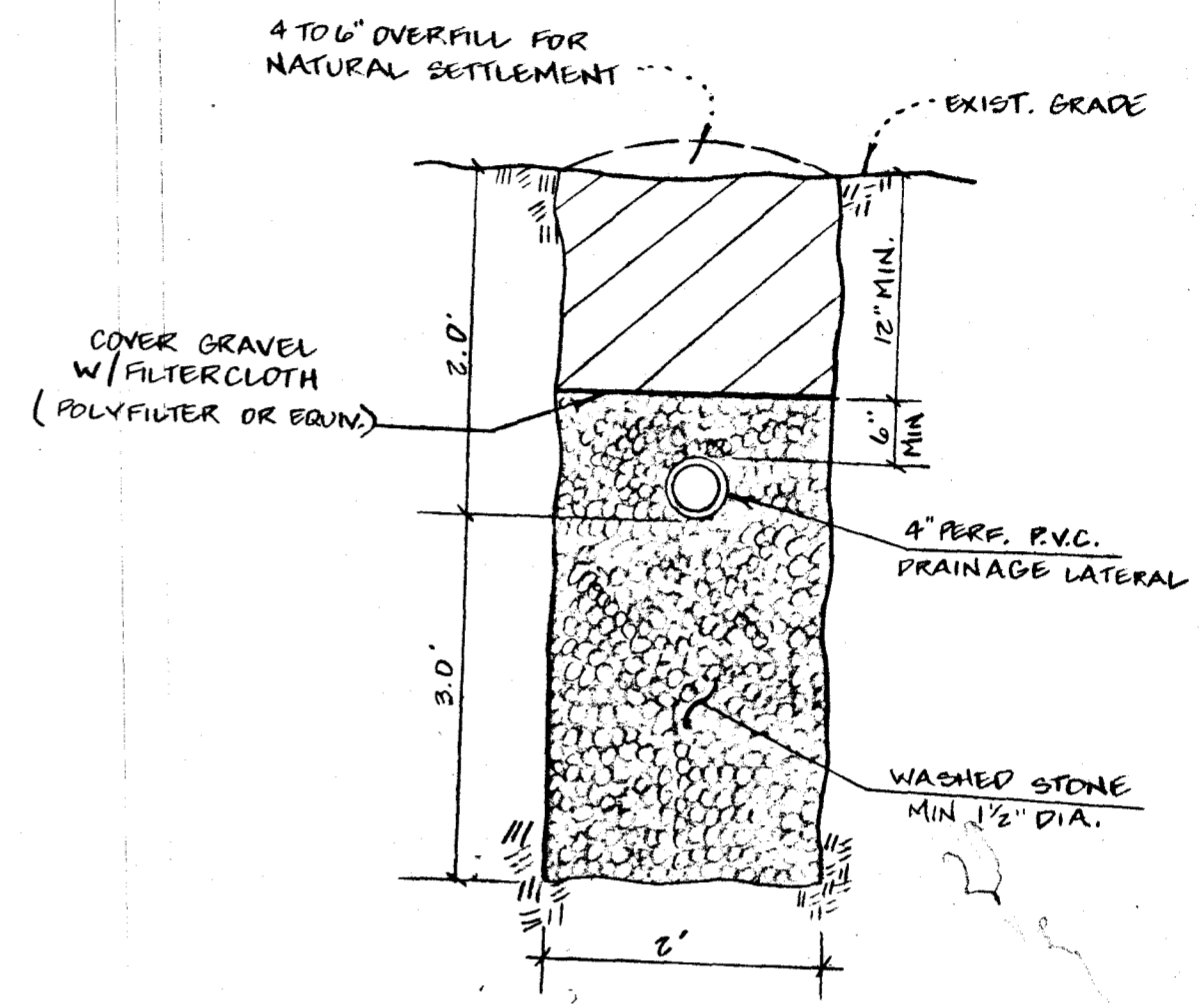 4 TO 6" OVERFILL FOR
NATURAL SETTLEMENT
EXIST. GRADE
12" MIN.
2.0'
COVER GRAVEL
W/ FILTERCLOTH
(POLYFILTER OR EQUIV.)
6"
MIN
4" PERF. P.V.C.
DRAINAGE LATERAL
3.0'
WASHED STONE
MIN 1½" DIA.
2'